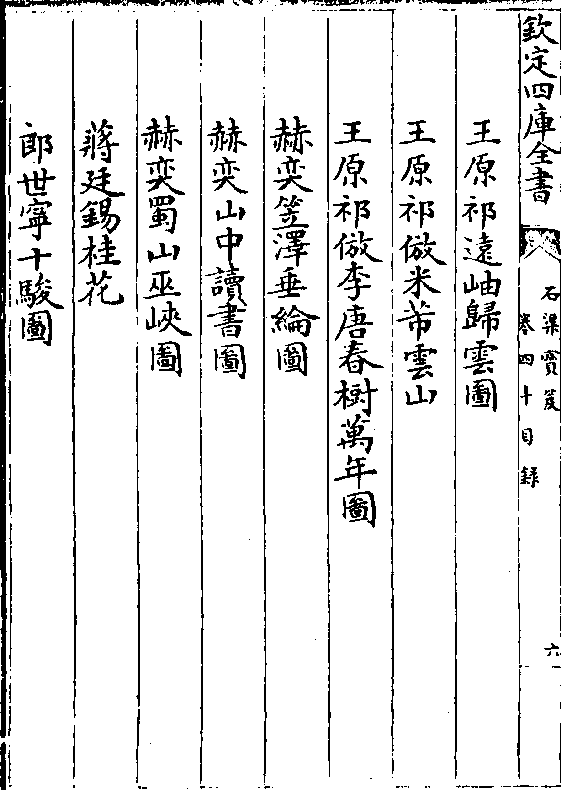 欽定四庫全書
石渠寶笈
卷四十目録
六
王原祁遠岫歸雲圖
王原祁倣米芾雲山
王原祁倣李唐春樹萬年圖
赫奕笠澤垂綸圖
赫奕山中讀書圖
赫奕蜀山巫峽圖
蔣廷錫桂花
郎世寧十駿圖